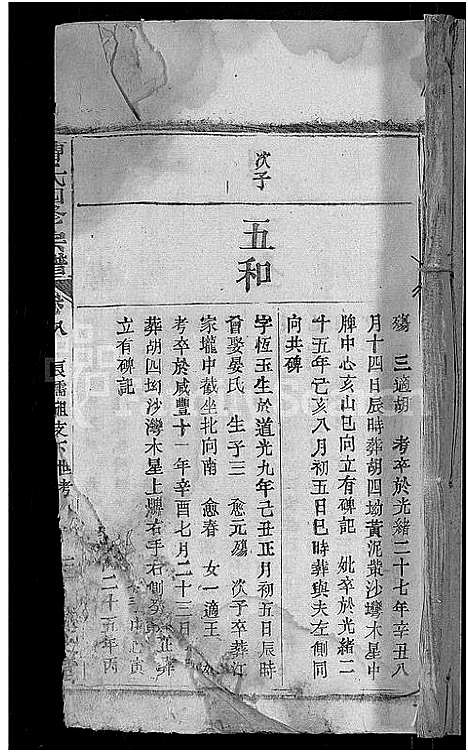 次子
五和
殤 三適胡 考卒於光緒二十七年辛丑八
月十四日辰時葬胡四坳黃沉黃沙灣木星中
牌中心亥山巳向立有碑記 妣卒於光緒二
十五年己亥八月初五日巳時葬與夫左側同
向共碑
字恆玉生於道光九年己丑正月初五日辰時
曾娶晏氏 生子三 愈元殤 次子卒葬江
家壠中截坐北向南 愈春 女一適王
考卒於咸豐十一年辛酉七月二十三
葬胡四坳沙灣木星上牌右手右側
立有碑記
二十五年丙
氏四修宗譜
卷八